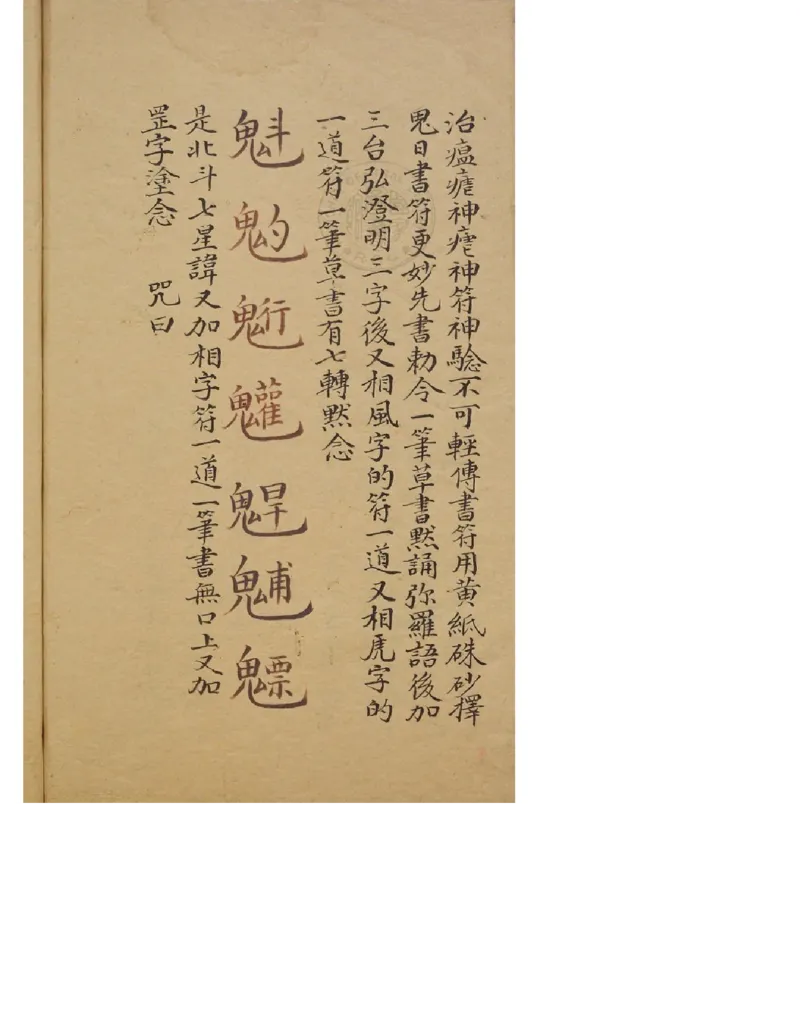 治瘟瘧神瘧神符神驗不可輕傳書符用黃紙硃砂擇
鬼日書符更妙先書勅令一筆草書默誦弥羅語後加
三台弘澄明三字後又相風字的符一道又相虎字的
一道符一筆草書有七轉默念
魁䰢䰢魒
是北斗七星諱又加相字符一道一筆書無口上又加
罡字塗念 咒曰